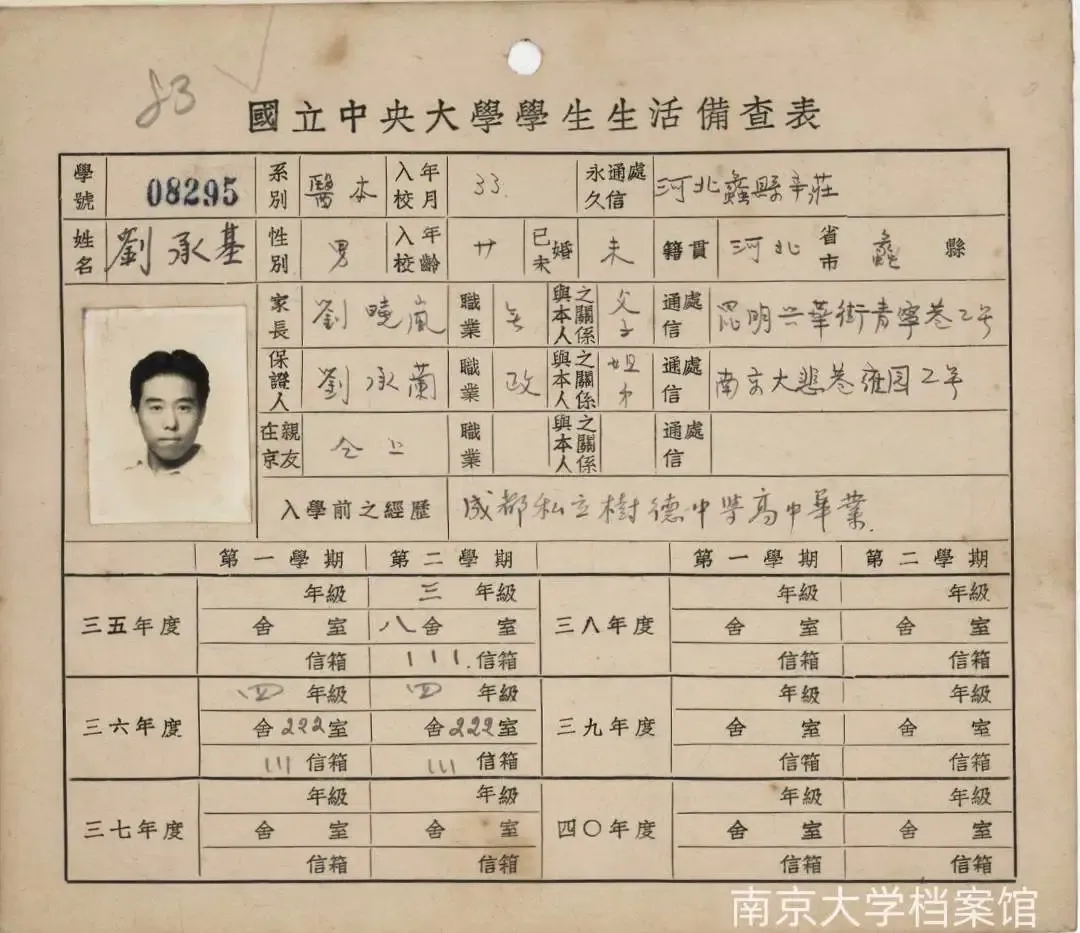 83
國立中央大學學生生活備查表
學號 08295 系別 醫本 入校年月 33. 永久通信處 河北蠡縣辛莊
姓名 劉承基 性別 男 入校年齡 廿 已未婚 未 籍貫 河北 省市 蠡 縣
家長 劉曉嵐 職業 與本人之關係 父子 通信處 昆明興華街青寧巷2号
保證人 劉承蘭 職業 政 與本人之關係 姐弟 通信處 南京大悲巷雍园2号
在京親友 仝上 職業 與本人之關係 通信處
入學前之經歷 成都私立樹德中學高中畢業.
第一學期 第二學期 第一學期 第二學期
年級 三 年級 年級 年級
三五年度 舍 室 八舍 室 三八年度 舍 室 舍 室
信箱 111. 信箱 信箱 信箱
四 年級 四 年級 年級 年級
三六年度 舍222室 舍222室 三九年度 舍 室 舍 室
111 信箱 111 信箱 信箱 信箱
年級 年級 年級 年級
三七年度 舍 室 舍 室 四〇年度 舍 室 舍 室
信箱 信箱 信箱 信箱
南京大学档案馆